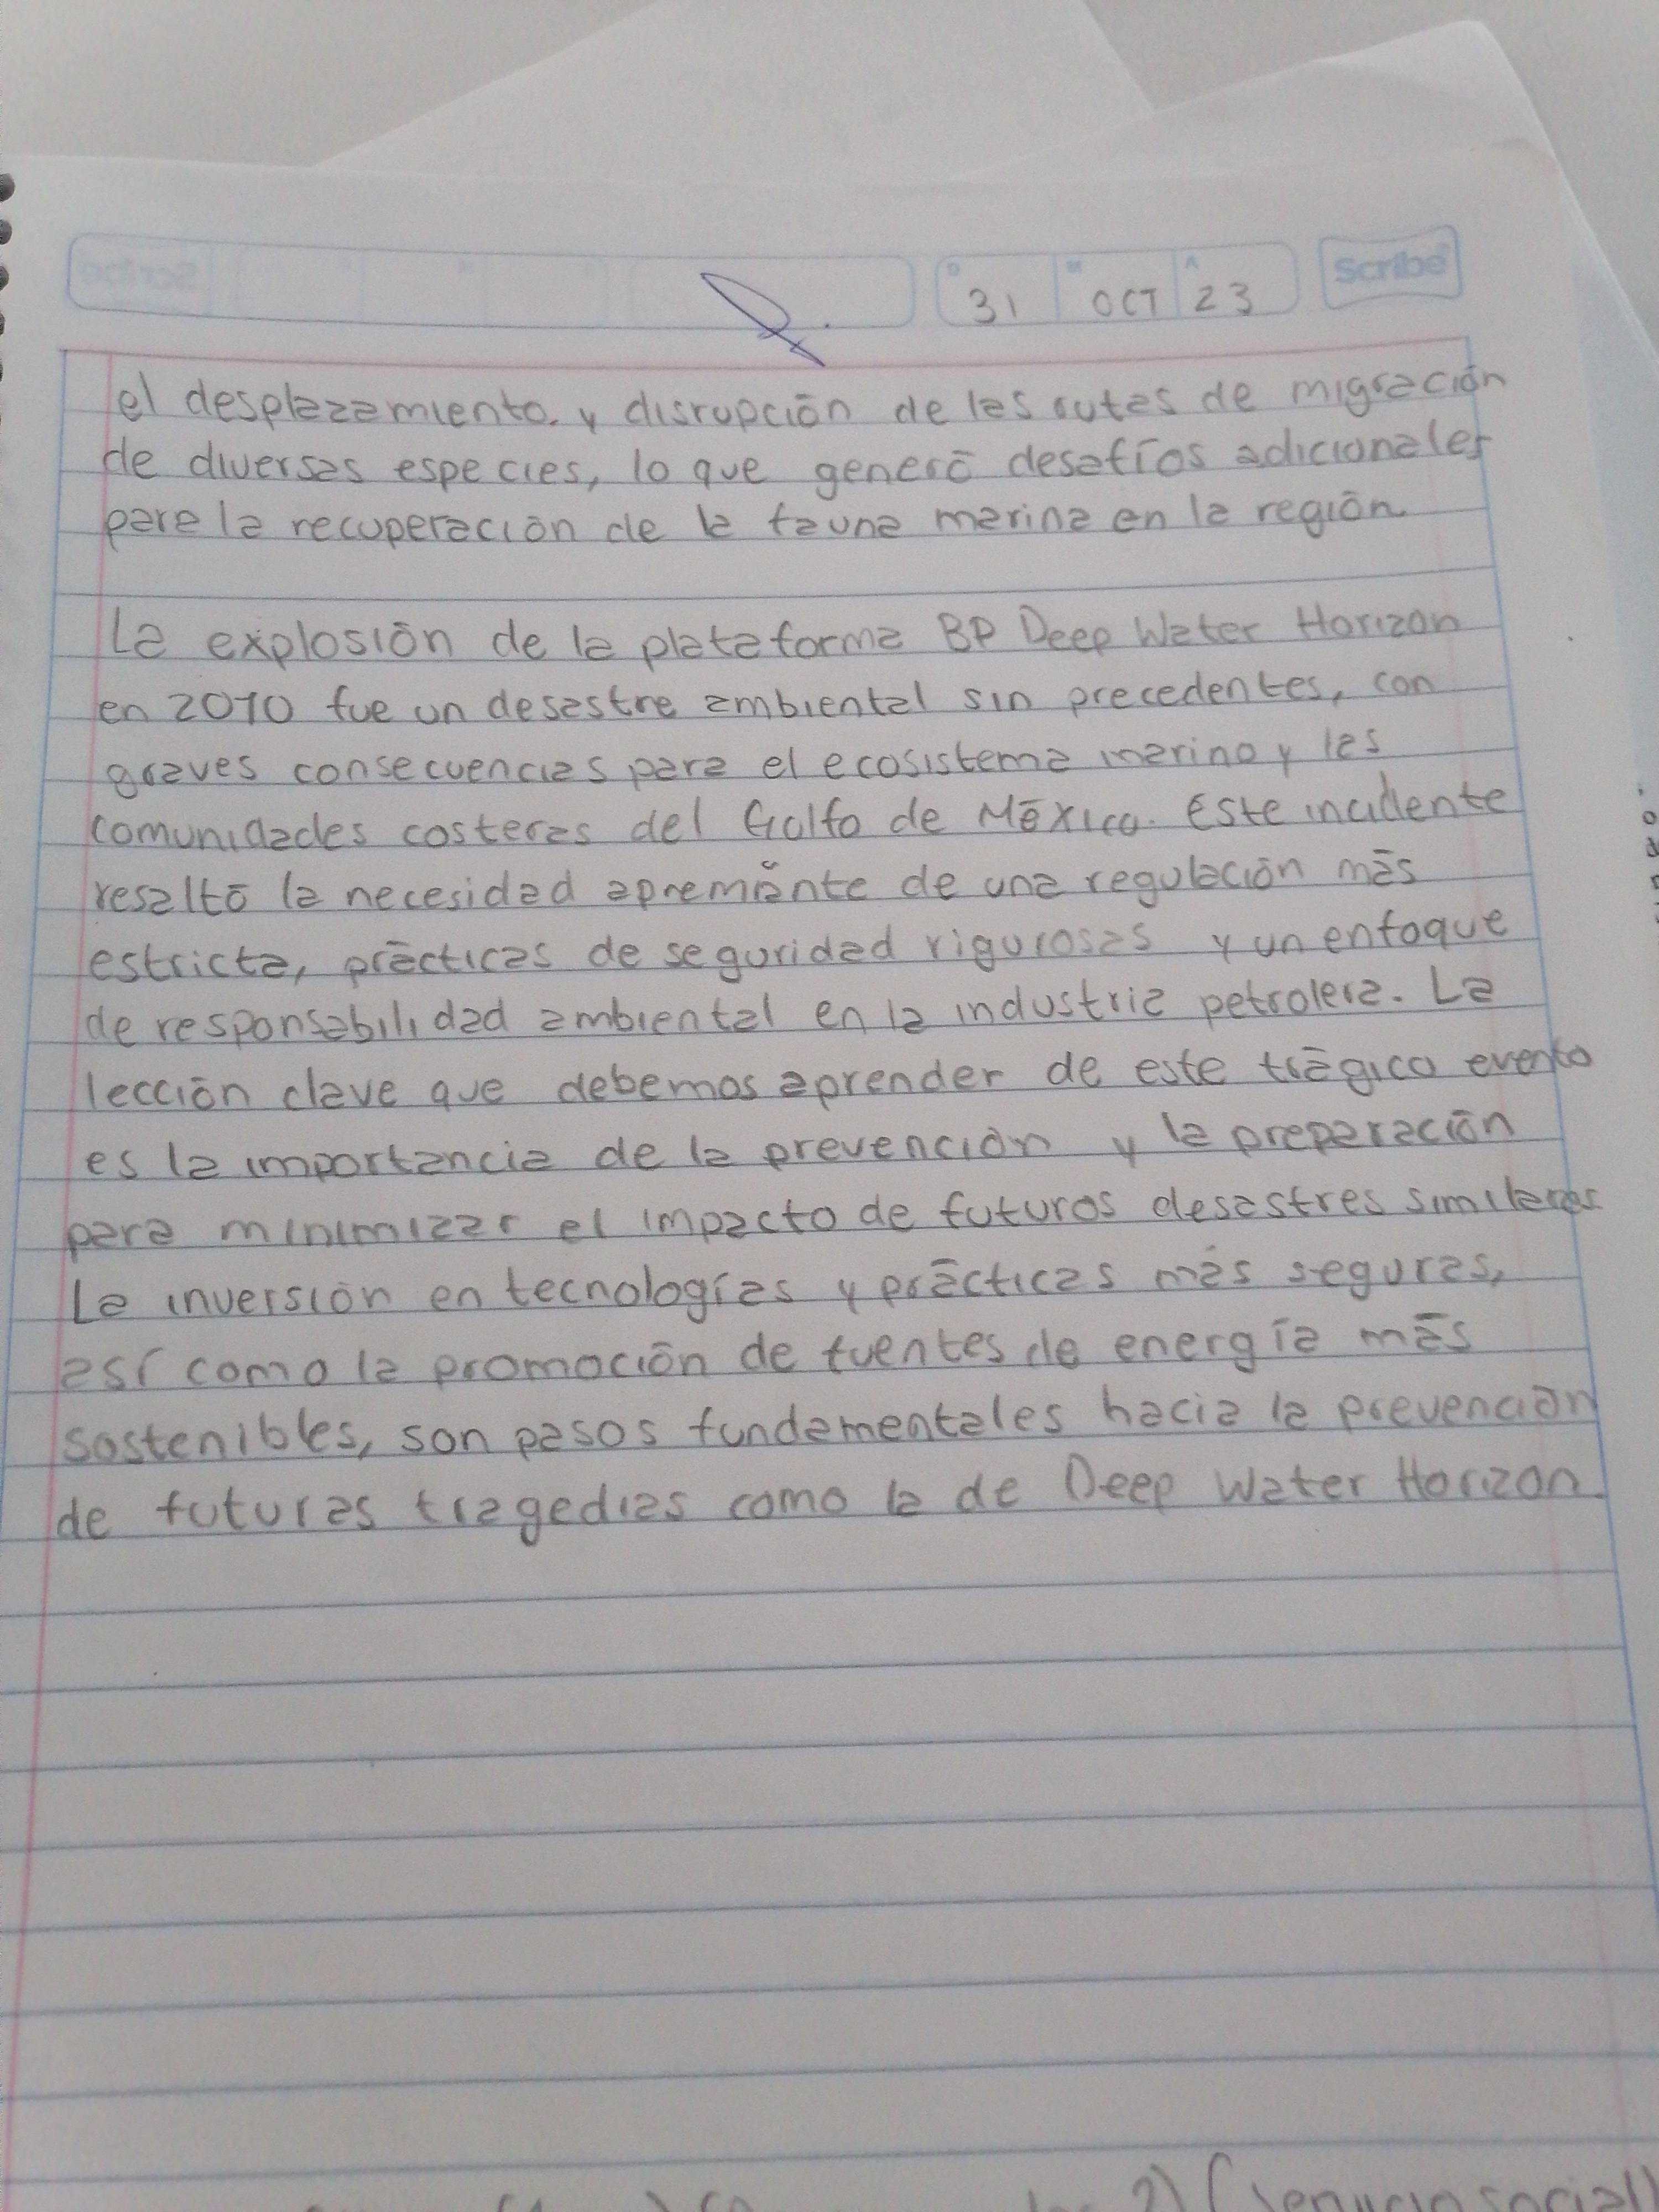 Scribe
D 31 M OCT A 23
el desplazamiento. y disrupción de las rutas de migración
de diversas especies, lo que generó desafíos adicionales
para la recuperación de la fauna marina en la región.
La explosión de la plataforma BP Deep Water Horizon
en 2010 fue un desastre ambiental sin precedentes, con
graves consecuencias para el ecosistema marino y las
comunidades costeras del Golfo de México. Este incidente
resaltó la necesidad apremiante de una regulación más
estricta, prácticas de seguridad rigurosas y un enfoque
de responsabilidad ambiental en la industria petrolera. La
lección clave que debemos aprender de este trágico evento
es la importancia de la prevención y la preparación
para minimizar el impacto de futuros desastres similares.
La inversión en tecnologías y prácticas más seguras,
así como la promoción de fuentes de energía más
sostenibles, son pasos fundamentales hacia la prevención
de futuras tragedias como la de Deep Water Horizon.
2) (servicio social)